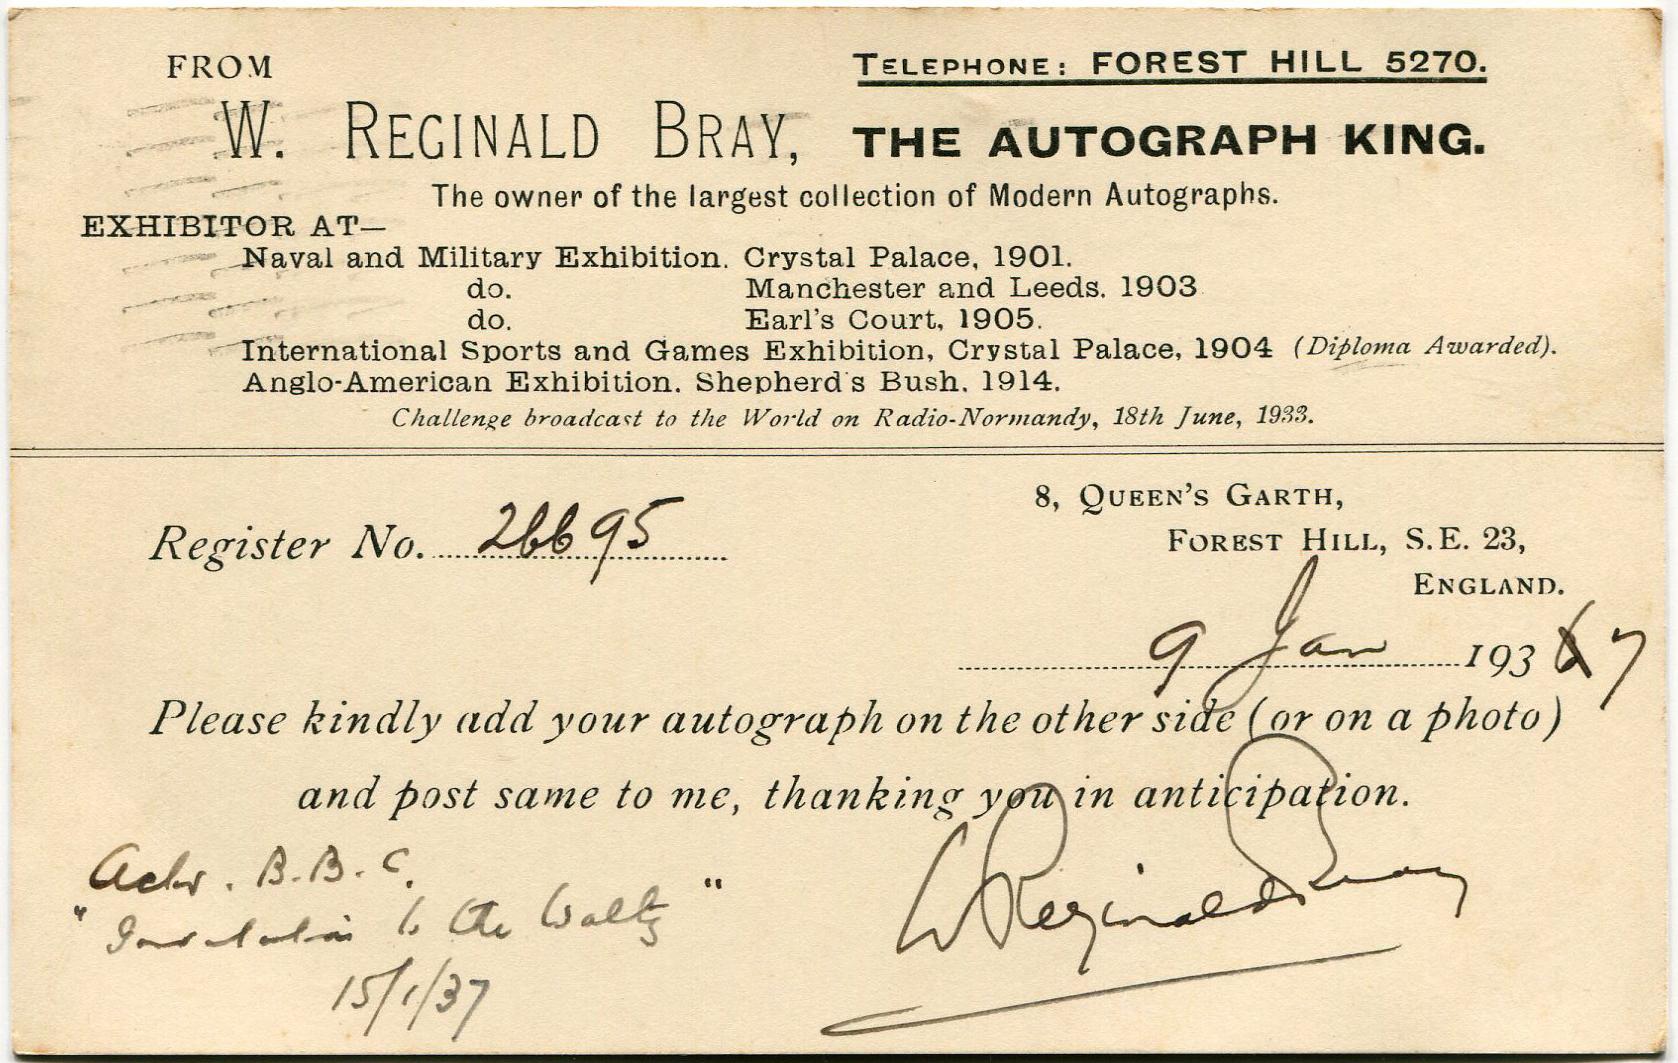 FROM
TELEPHONE: FOREST HILL 5270.
W. REGINALD BRAY, THE AUTOGRAPH KING.
The owner of the largest collection of Modern Autographs.
EXHIBITOR AT—
Naval and Military Exhibition. Crystal Palace, 1901.
do. Manchester and Leeds. 1903
do. Earl's Court, 1905.
International Sports and Games Exhibition, Crystal Palace, 1904 (Diploma Awarded).
Anglo-American Exhibition. Shepherd's Bush. 1914.
Challenge broadcast to the World on Radio-Normandy, 18th June, 1933.
8, QUEEN'S GARTH,
Register No. 26695
FOREST HILL, S.E. 23,
ENGLAND.
9 Jan 193 6 7
Please kindly add your autograph on the other side (or on a photo)
and post same to me, thanking you in anticipation.
Actor. B.B.C.
"Invitation to the Waltz"
W Reginald Bray
15/1/37